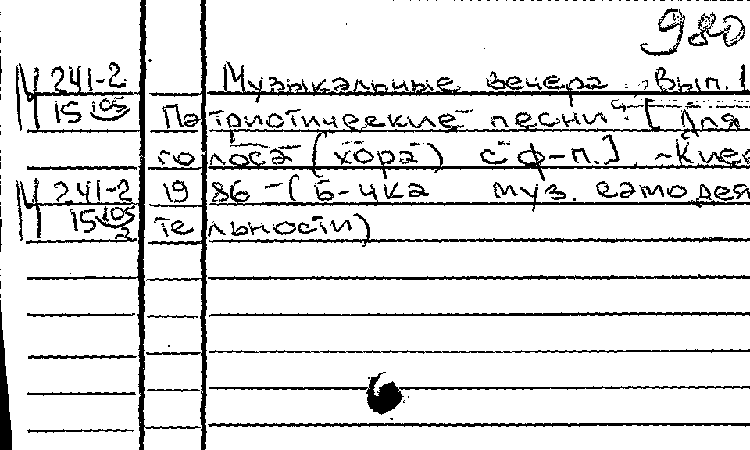 980
М 241-2 Музыкальные вечера. Вып. 1
15 105 Патриотические песни: [Для
голоса (хора) с ф-п.]. -Киев
М 241-2 1986 -(Б-чка муз. самодея
15 105 2 тельности)